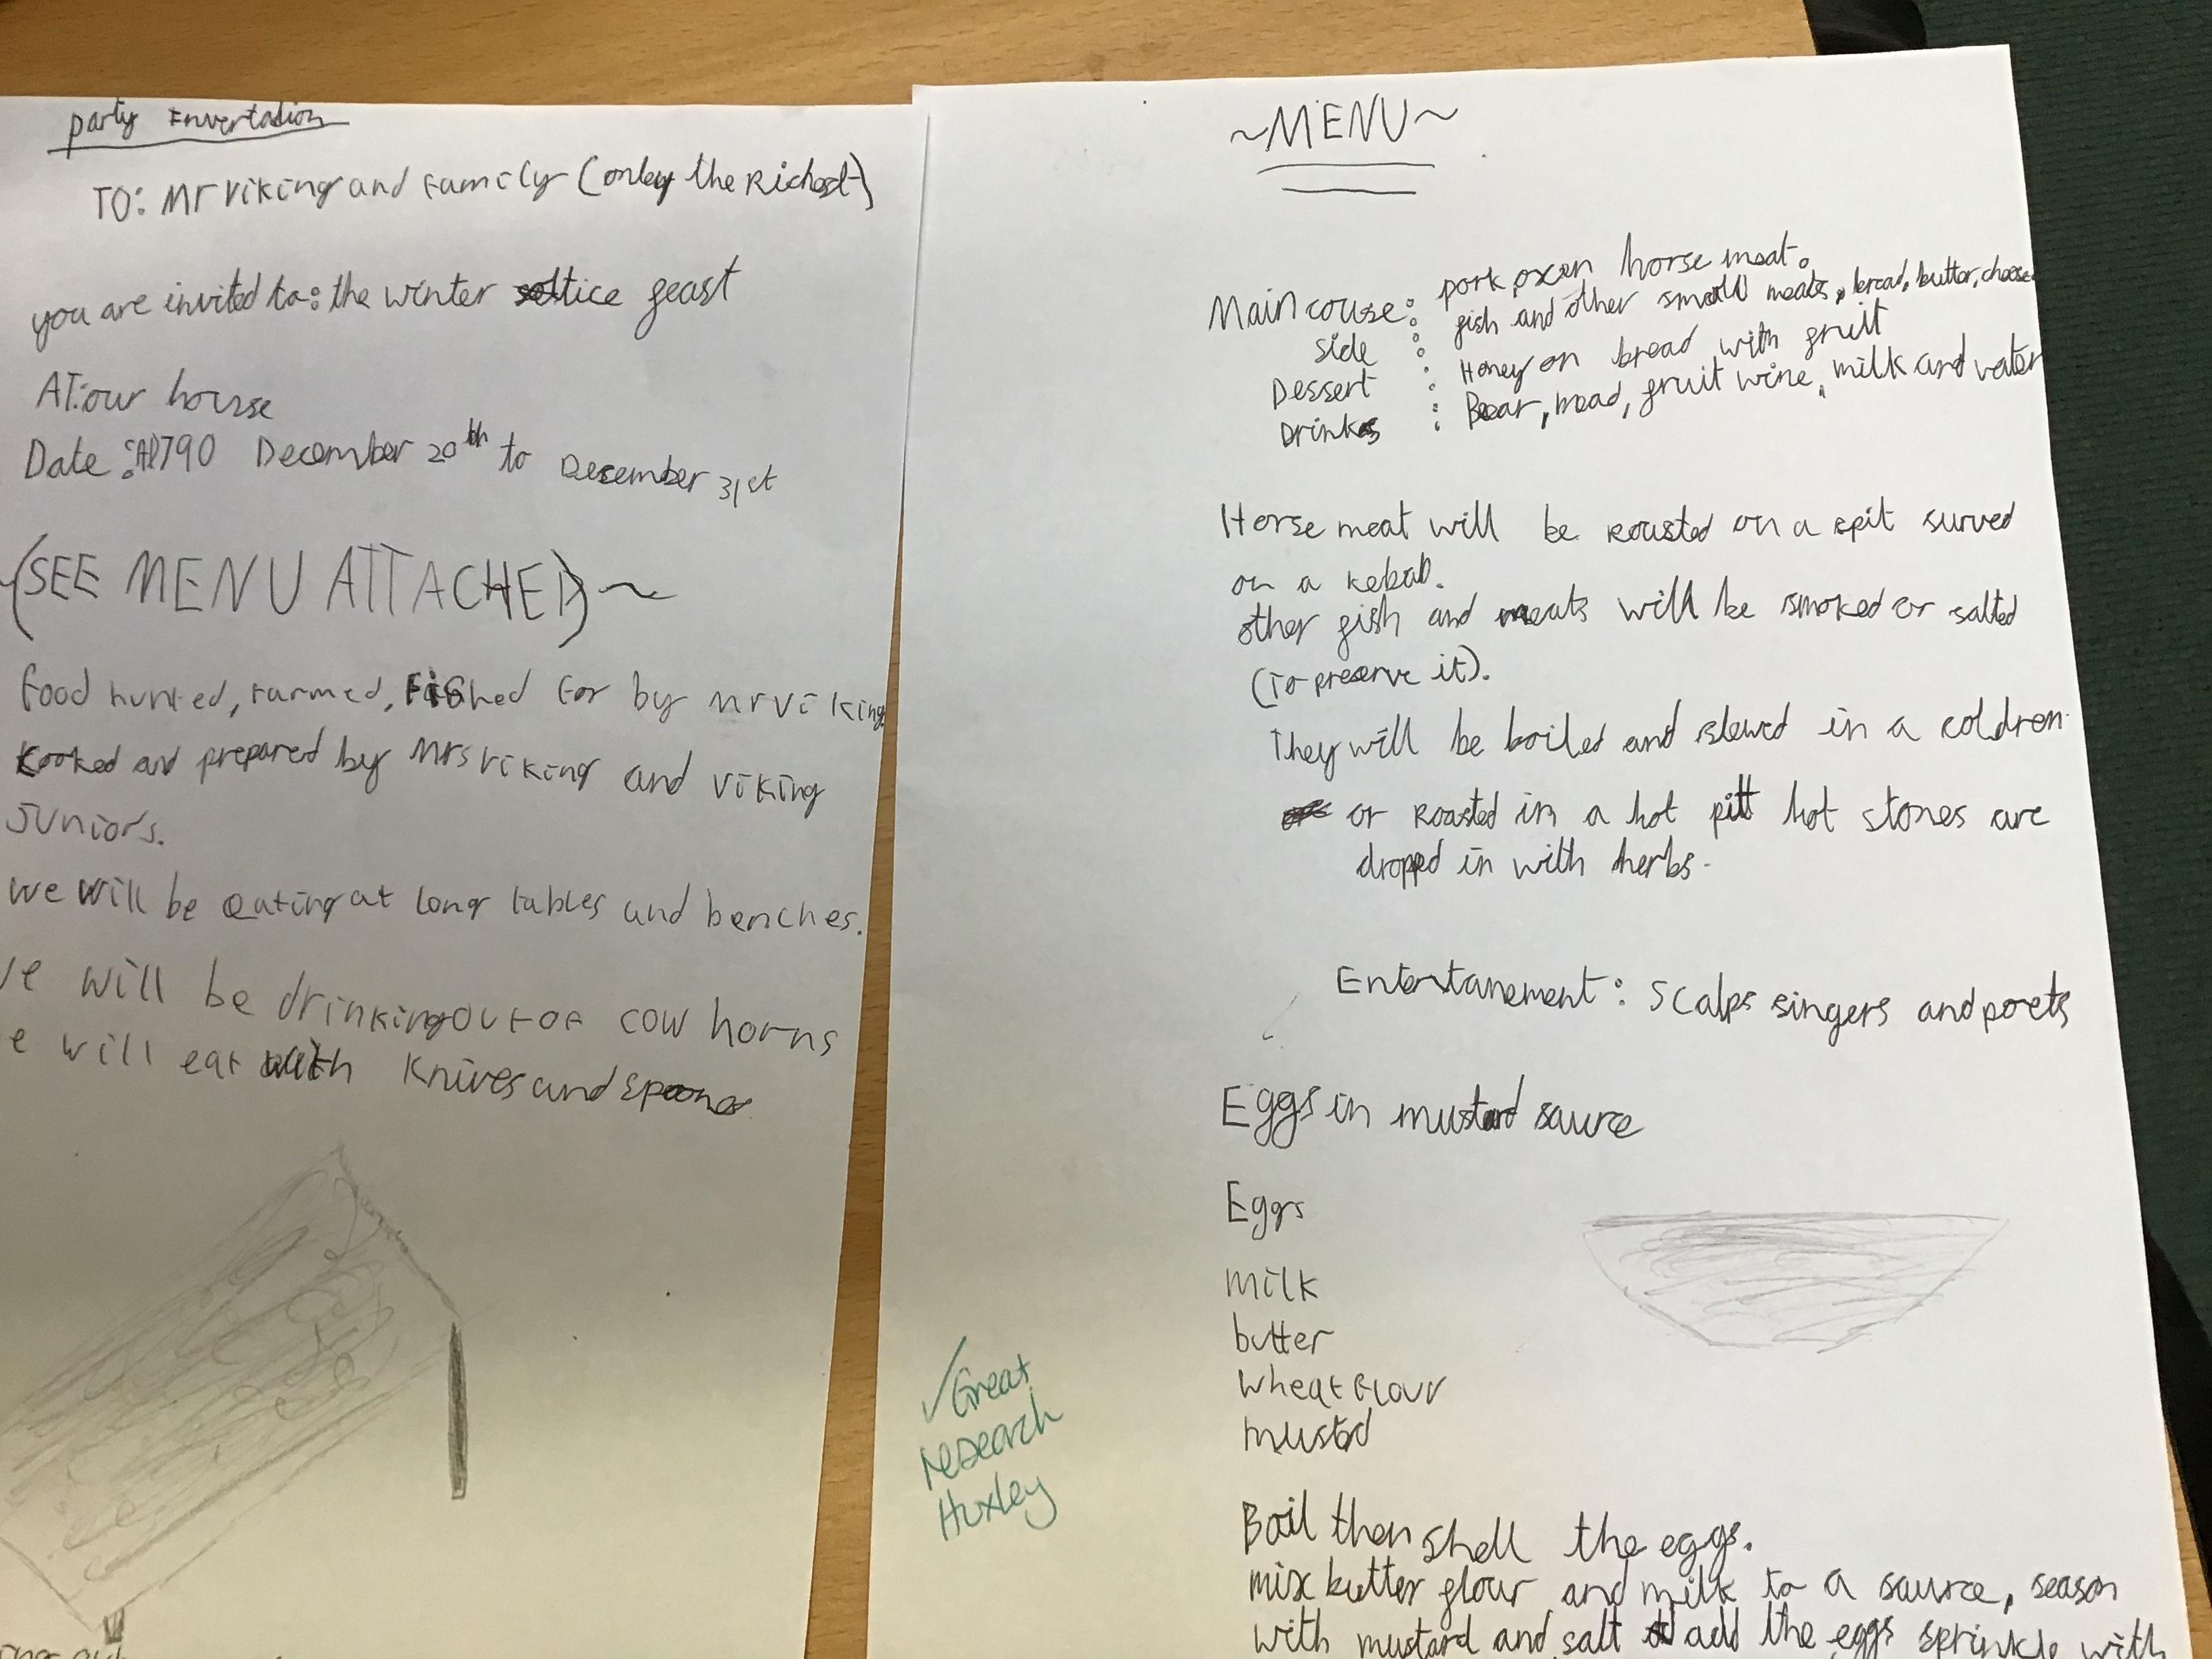 party Envertation
TO: Mr viking and Family (onley the Richest)
you are invited to: the winter soltice feast
AT: our house
Date: AD790 December 20th to December 31st
(SEE MENU ATTACHED)~
food hunted, farmed, Fished for by mr viking
cooked and prepared by Mrs viking and viking
Juniors.
we will be eating at long tables and benches.
we will be drinking out of cow horns
e will eat with knives and spoons
~MENU~
Main couse: pork oxen horse meat.
side : fish and other small meats, bread, butter, cheese
Dessert : Honey on bread with fruit
Drinks : Bear, mead, fruit wine, milk and water
Horse meat will be roasted on a spit surved
on a kebab.
other fish and meats will be smoked or salted
(To preserve it).
They will be boiled and stewed in a coldren
or roasted in a hot pitt hot stones are
dropped in with herbs.
Entertanement: Scalps singers and poets
Eggs in mustard saurce
Eggs
milk
butter
wheat flour
mustd
✓Great
research
Huxley
Boil then shell the eggs.
mix butter flour and milk to a saurce, season
with mustard and salt add the eggs sprinkle with